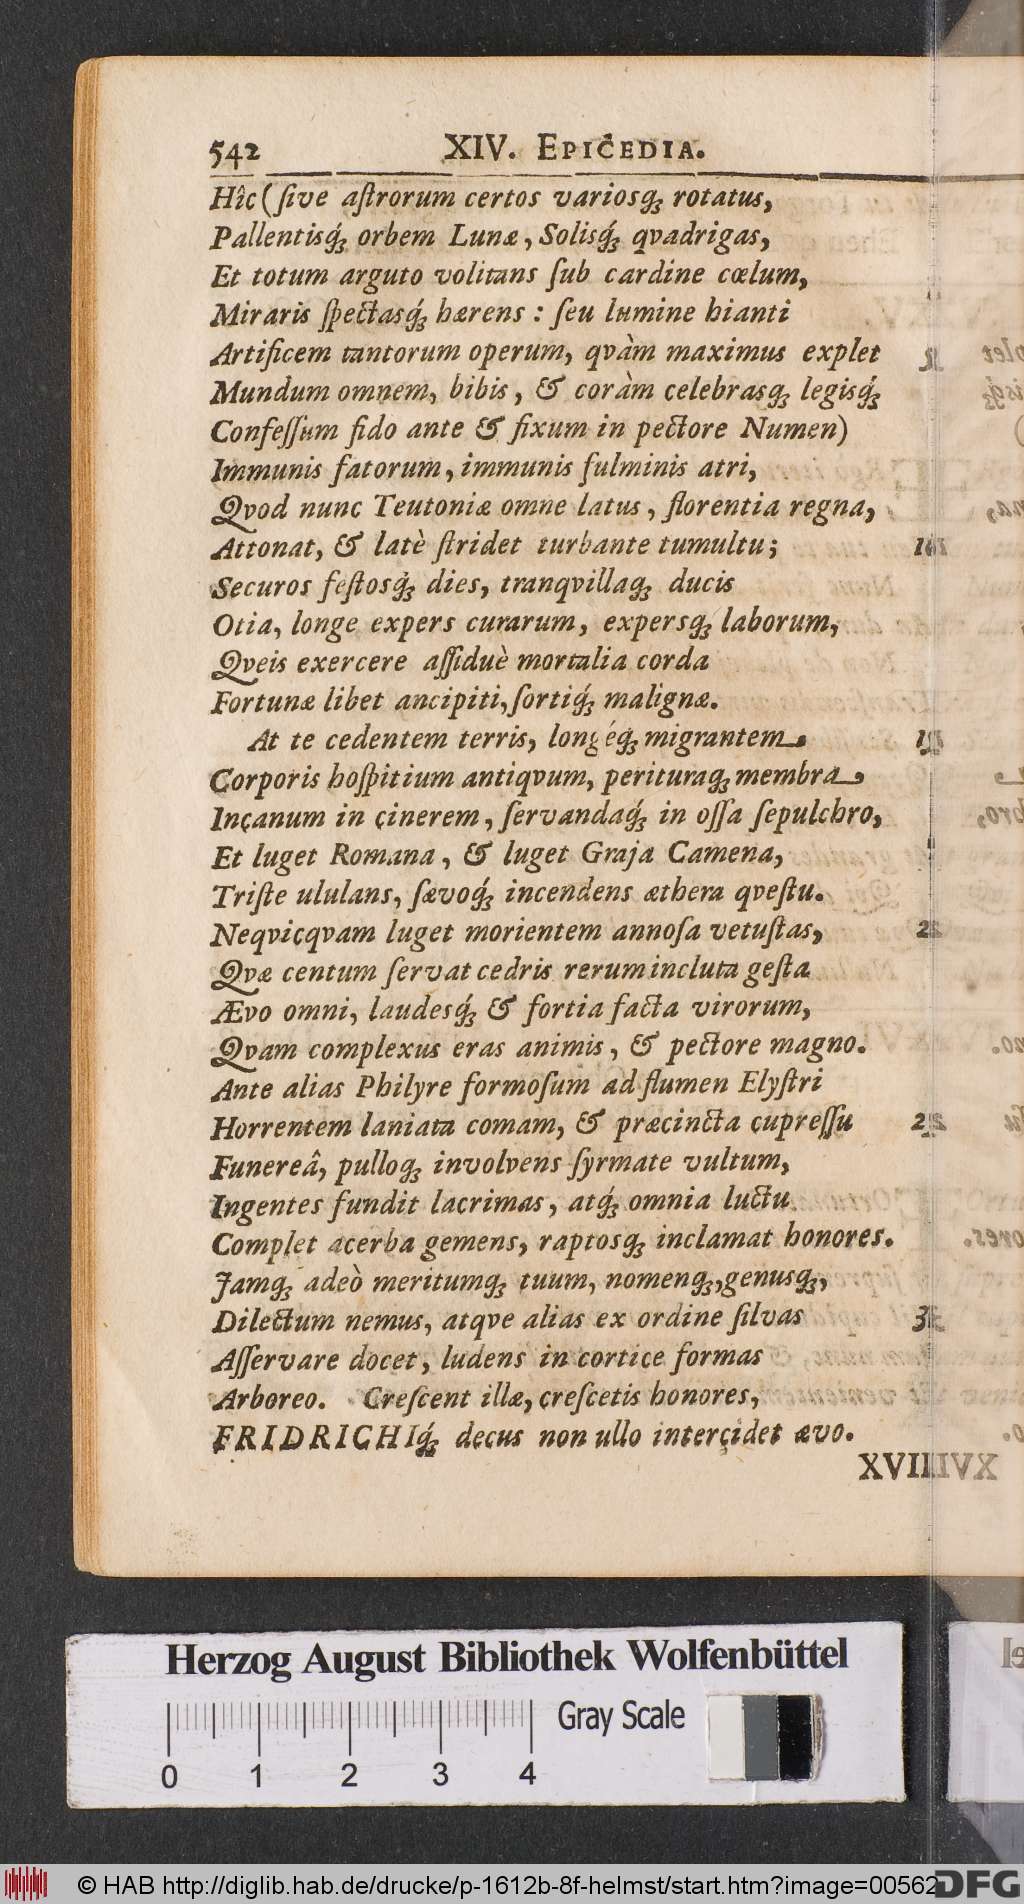 542 XIV. EPICEDIA.
Hîc (ſive aſtrorum certos variosq́; rotatus,
Pallentisq́; orbem Lunæ, Solisq́; qvadrigas,
Et totum arguto volitans ſub cardine cœlum,
Miraris ſpectasq́; hærens : ſeu lumine hianti
Artificem tantorum operum, qvàm maximus explet
Mundum omnem, bibis, & coràm celebrasq; legisq́;
Confeſſum fido ante & fixum in pectore Numen)
Immunis fatorum, immunis fulminis atri,
Qvod nunc Teutoniæ omne latus, florentia regna,
Attonat, & latè ſtridet turbante tumultu;
Securos feſtosq́; dies, tranqvillaq; ducis
Otia, longe expers curarum, expersq; laborum,
Qveis exercere aſſiduè mortalia corda
Fortunæ libet ancipiti, ſortiq́; malignæ.
At te cedentem terris, longéq́; migrantem
Corporis hoſpitium antiqvum, perituraq; membra,
Incanum in cinerem, ſervandaq́; in oſſa ſepulchro,
Et luget Romana, & luget Graja Camena,
Triſte ululans, ſævoq́; incendens æthera qveſtu.
Neqvicqvam luget morientem annoſa vetuſtas,
Qvæ centum ſervat cedris rerum incluta geſta
Ævo omni, laudesq́; & fortia facta virorum,
Qvam complexus eras animis, & pectore magno.
Ante alias Philyre formoſum ad flumen Elyſtri
Horrentem laniata comam, & præcincta cupreſſu
Funereâ, pulloq; involvens ſyrmate vultum,
Ingentes fundit lacrimas, atq́; omnia luctu
Complet acerba gemens, raptosq; inclamat honores.
Jamq; adeò meritumq; tuum, nomenq;, genusq;,
Dilectum nemus, atqve alias ex ordine ſilvas
Aſſervare docet, ludens in cortice formas
Arboreo. Creſcent illæ, creſcetis honores,
FRIDRICHIq́; decus non ullo intercidet ævo.
XVII.
Herzog August Bibliothek Wolfenbüttel
Gray Scale
0 1 2 3 4
© HAB http://diglib.hab.de/drucke/p-1612b-8f-helmst/start.htm?image=00562
DFG